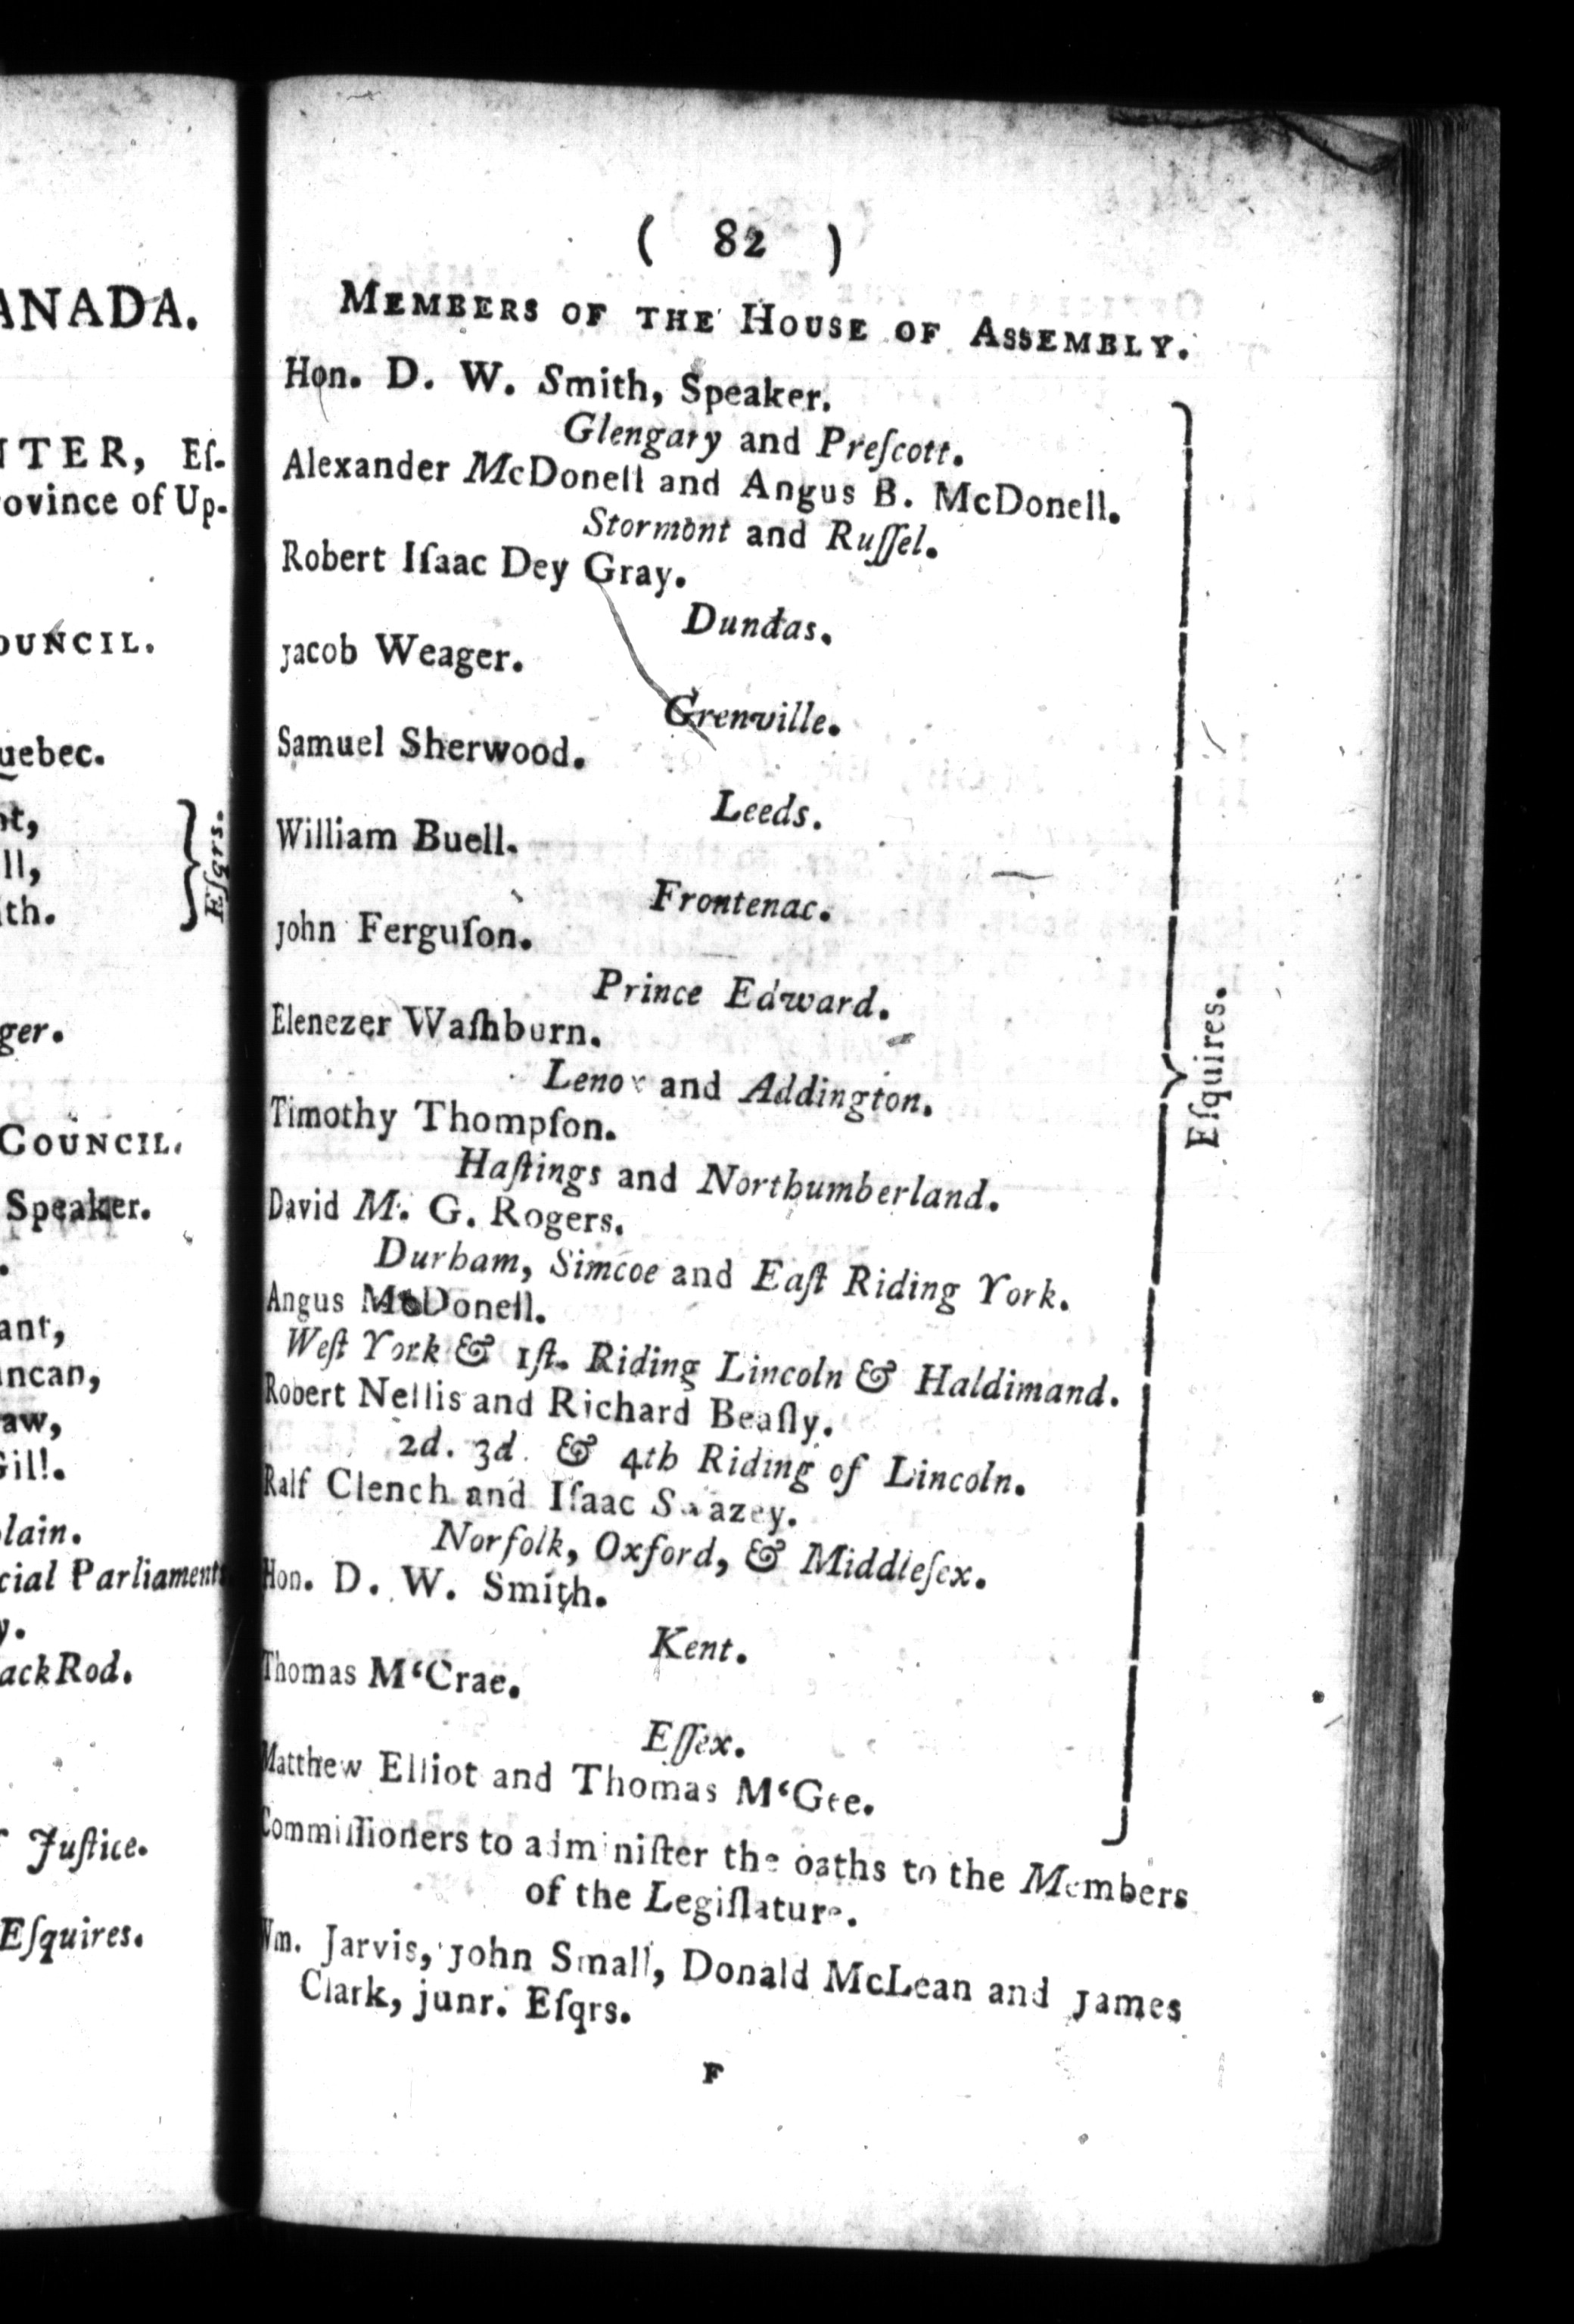 ANADA.
NTER, Eſ-
rovince of Up-
OUNCIL.
uebec.
nt,
ll,
ith.
Eſqrs.
ger.
COUNCIL.
Speaker.
ant,
uncan,
aw,
Gill.
lain.
cial Parliament
y.
ackRod.
Juſtice.
Eſquires.
( 82 )
MEMBERS OF THE HOUSE OF ASSEMBLY.
Hon. D. W. Smith, Speaker.
Glengary and Preſcott.
Alexander McDonell and Angus B. McDonell.
Stormont and Ruſſel.
Robert Iſaac Dey Gray.
Dundas.
Jacob Weager.
Grenville.
Samuel Sherwood.
Leeds.
William Buell.
Frontenac.
John Ferguſon.
Prince Edward.
Elenezer Waſhburn.
Lenox and Addington.
Timothy Thompſon.
Haſtings and Northumberland.
David M. G. Rogers.
Durham, Simcoe and Eaſt Riding York.
Angus McDonell.
Weſt York & 1ſt. Riding Lincoln & Haldimand.
Robert Nellis and Richard Beaſly.
2d. 3d. & 4th Riding of Lincoln.
Ralf Clench and Iſaac Swazey.
Norfolk, Oxford, & Middleſex.
Hon. D. W. Smith.
Kent.
Thomas M‘Crae.
Eſſex.
Matthew Elliot and Thomas M‘Gee.
Eſquires.
Commiſſioners to adminiſter the oaths to the Members
of the Legiſlature.
Wm. Jarvis, John Small, Donald McLean and James
Clark, junr. Eſqrs.
F